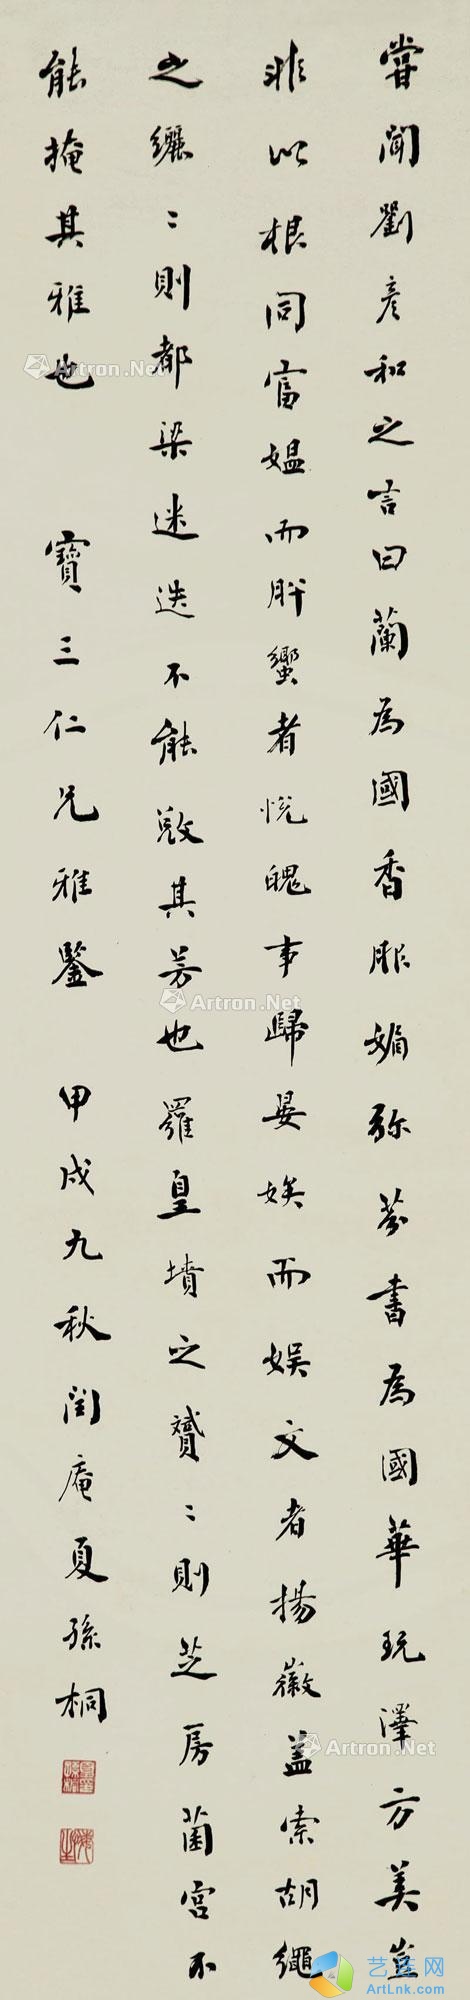 嘗聞劉彥和之言曰蘭為國香服媚弥芬書為國華玩澤方美豈
非以根同富媼而肸蠁者悅魄事歸晏娭而娱文者揚徽盖索胡繩
之纚〻則都梁迷迭不能敚其芳也羅皇墳之贙〻則芝房菌宮不
能掩其雅也 寶三仁兄雅鑒 甲戌九秋閏庵夏孫桐
Artron.Net
Artron.Net
Artron.Net
Artron.Net
艺连网
ArtLnk.com